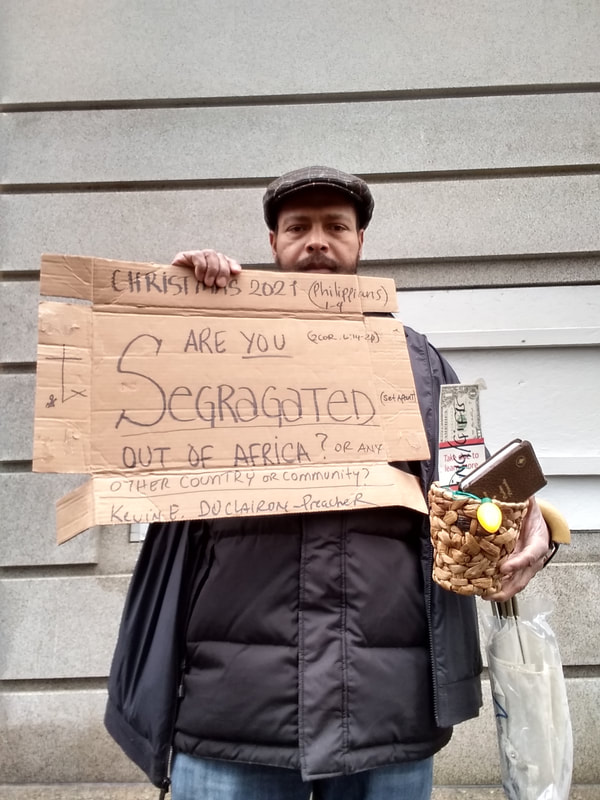 CHRISTMAS 2021 (Philippians)
1-4
ARE YOU (2COR. 6:14-18)
SEGRAGATED (Set APART)
OUT OF AFRICA? OR ANY
OTHER COUNTRY OR COMMUNITY?
KEVIN E. DUCLAIRON-PREACHER
Take
to
learn more